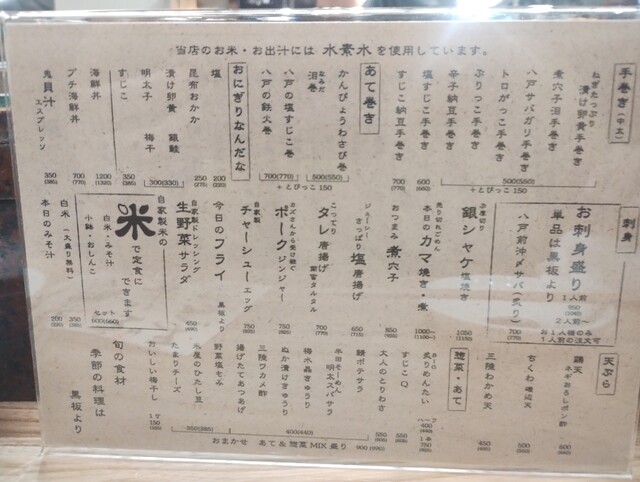 当店のお米・お出汁には 水素水 を使用しています。
手巻き（中太）
ねぎたっぷり
漬け卵黄手巻き
煮穴子沼手巻き
八戸サバガリ手巻き
トロがっこ手巻き
ぶりっこ手巻き
辛子納豆手巻き
500(550)
＋とびっこ 150
塩すじこ手巻き 600 (660)
すじこ納豆手巻き 700 (770)
あて巻き
かんぴょうわさび巻
なみだ
沼巻
500(550)
八戸の塩すじこ巻
八戸の鉄火巻
700(770)
＋とびっこ 150
おにぎりなんだな
塩 200 (220)
昆布おかか 250 (275)
漬け卵黄 銀鮭
明太子 梅子
300(330)
すじこ 350 (385)
海鮮丼 1200 (1320)
プチ海鮮丼 700 (770)
貝汁 エスプレッソ 350 (385)
刺身
お刺身盛り
1人前 950
2人前〜
単品は黒板より
お1人様のみ
1人前の注文可
八戸前沖〆サバ（炙り） 700 (770)
ぶ厚切り
銀シャケ 塩焼き 1050
売り切れごめん
本日のカマ 焼き・煮 1000〜
おつまみ 煮穴子 850
ジューシー
さっぱり 塩 唐揚げ 650 (715)
こってり
タレ 唐揚げ
南蛮タルタル 700 (770)
カズさんから受け継ぐ
ポークジンジャー 750 (825)
自家製
チャーシューエッグ 750 (825)
今日のフライ 黒板より
自家製ドレッシング
生野菜サラダ 450 (495)
自家製米の
米 で定食に
できます
白米・みそ汁
小鉢・おしんこ
セット 600(660)
白米（大盛り無料） 350 (385)
本日のみそ汁 200 (220)
天ぷら
鶏天
ネギおろしポン酢 600 (660)
ちくわ磯辺天 500
三陸わかめ天 450
惣菜・あて
炙りめんたい
ハーフ 400 (440)
1本 750
すじこQ 550
大人のとりわさ 550
鯖ポテサラ
半田そーめん
明太スパサラ
梅水晶きゅうり
ぬか漬けきゅうり
三陸ワカメ酢
揚げたてあつあげ
400(440)
野菜塩もみ
水屋のひたし豆
たまりチーズ
350(385)
おいしい梅干し 1ヶ 150
おまかせ あて＆惣菜MIX盛り 900 (990)
旬の食材
季節の料理は
黒板より